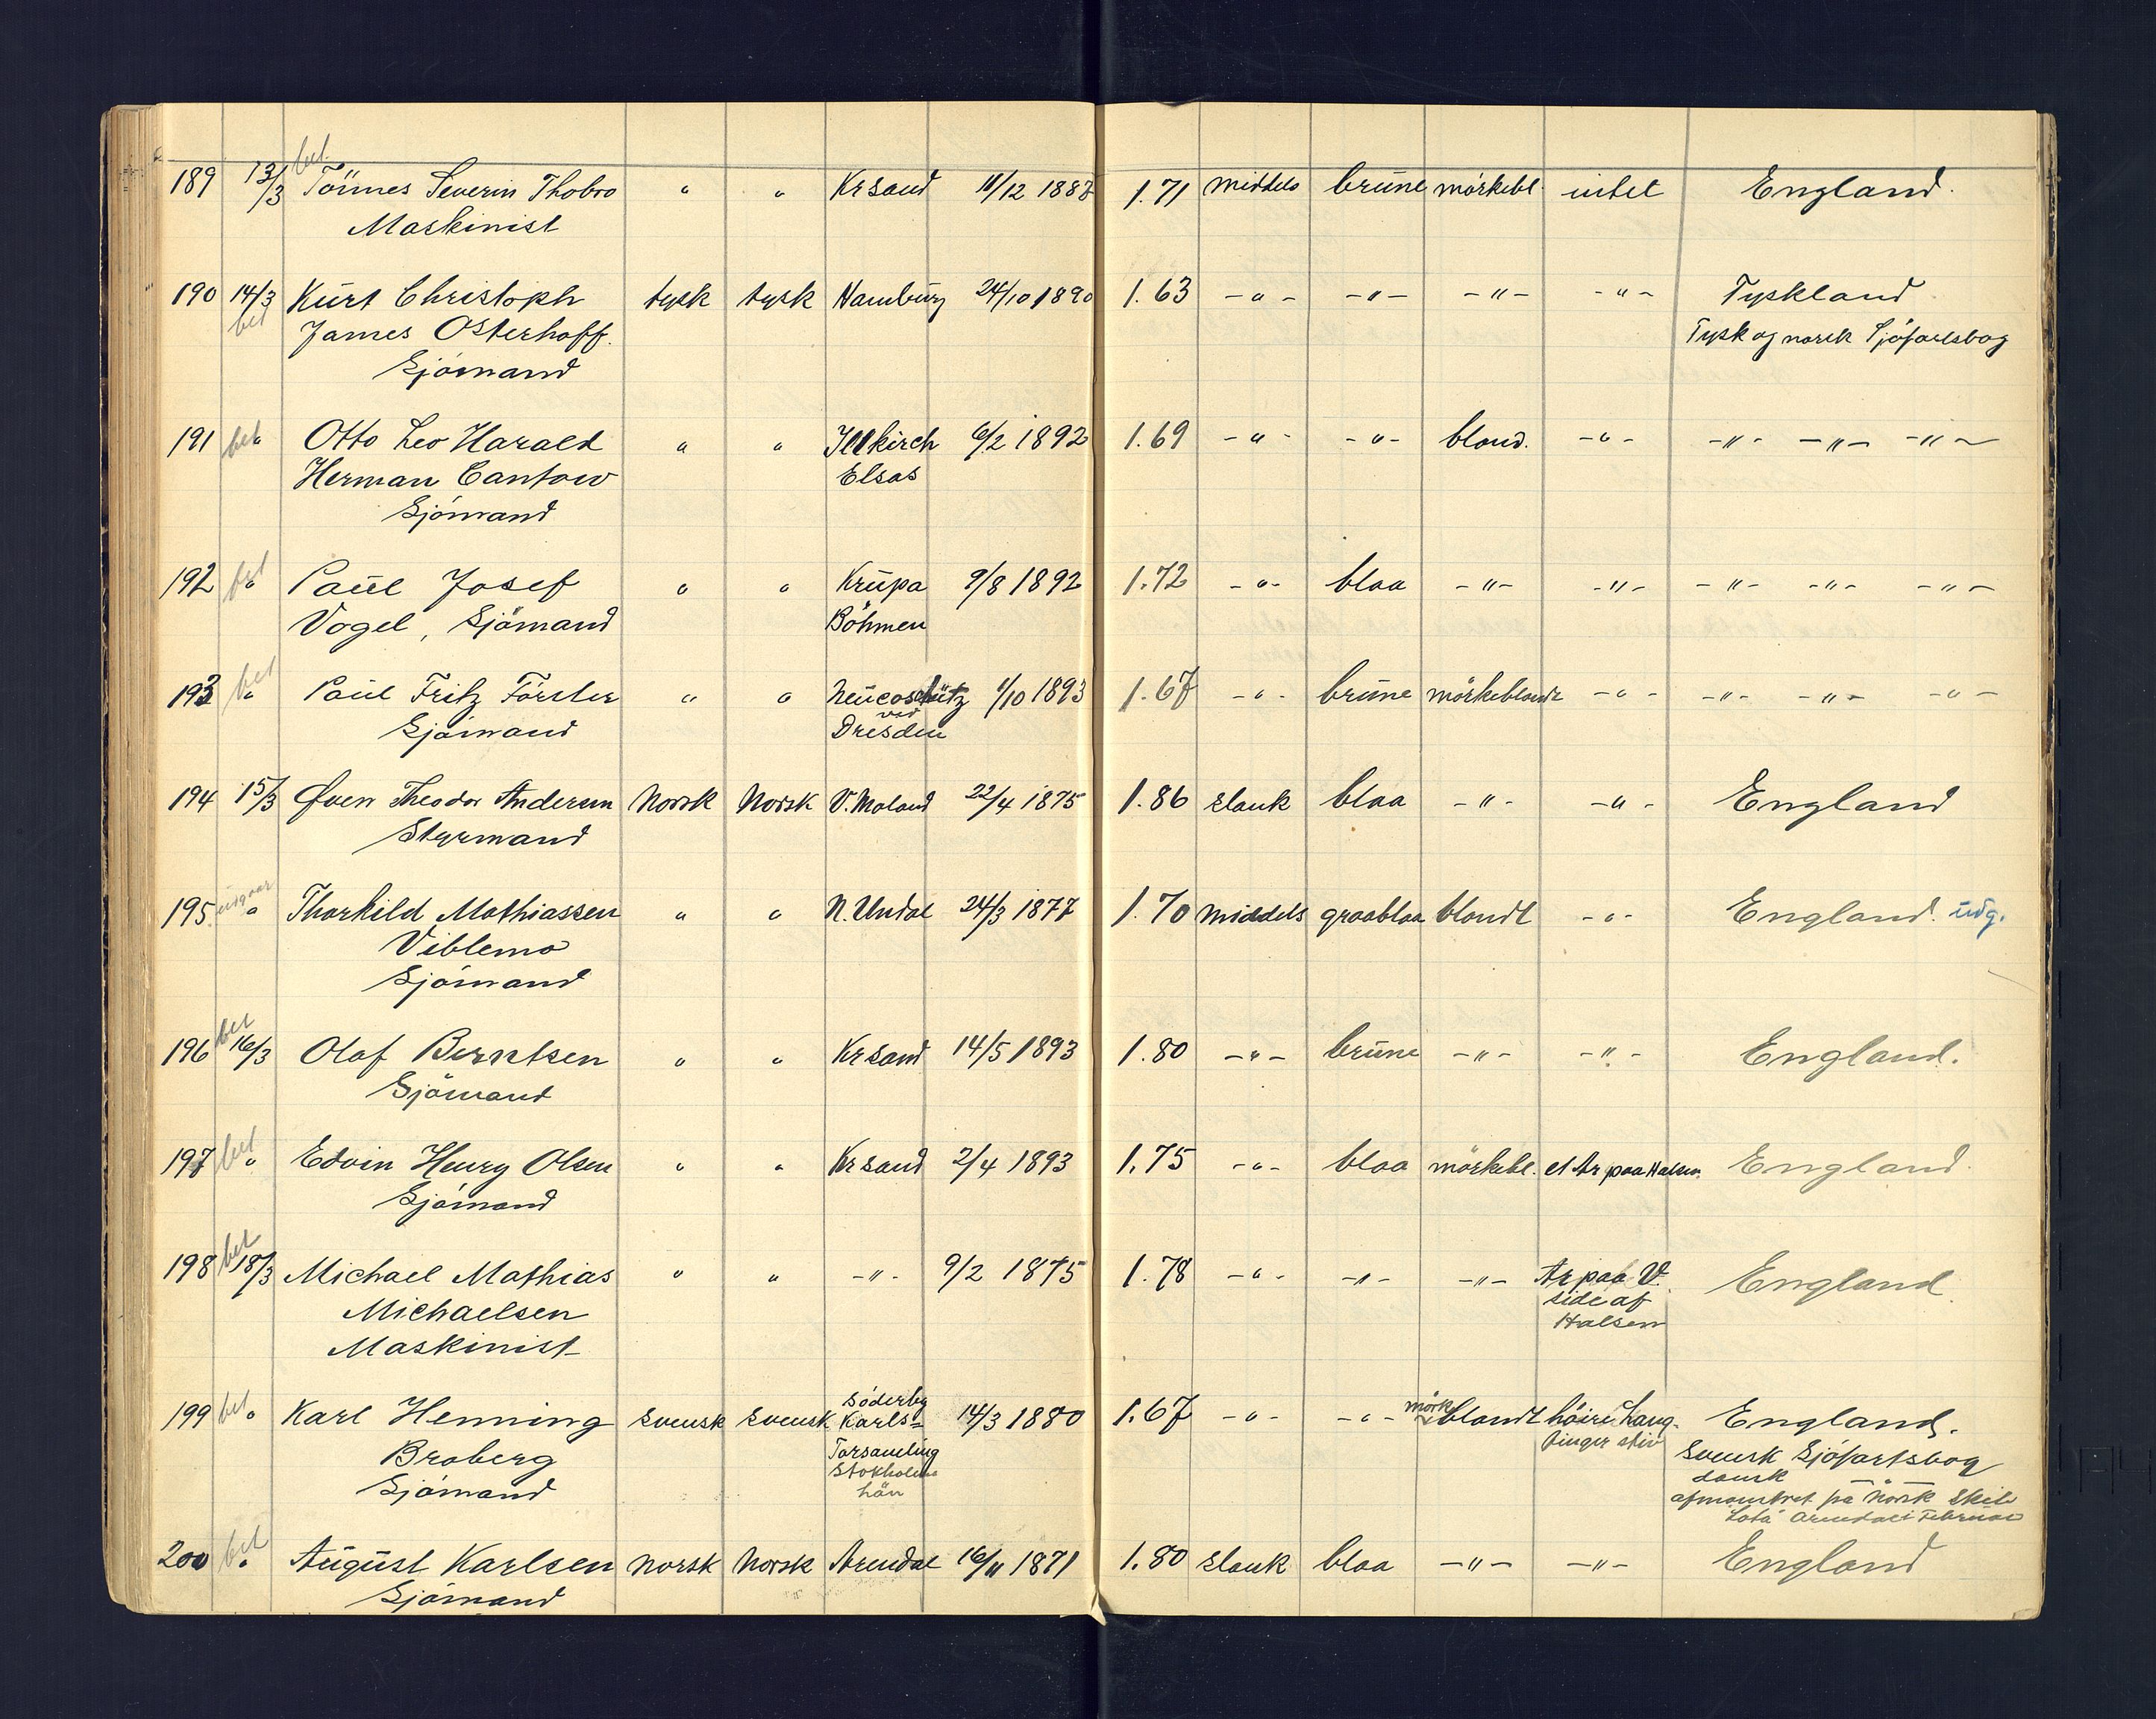 bet
189 13/3 Tönnes Severin Thobro " " Krsand 11/12 1887 1.71 middels brune mörkebl. intet England.
Maskinist
190 14/3 Kurt Christoph tysk tysk Hamburg 24/10 1890 1.63 -"- -"- -"- -"- Tyskland
bet James Osterhoff. Tysk og norsk Sjöfartsbog
Sjömand
191 bet " Otto Leo Harald " " Illkirch 6/2 1892 1.69 -"- -"- blond. -"- -"- -"- -"-
Herman Cantow Elsas
Sjömand
192 bet " Paul Josef " " Krupa 9/8 1892 1.72 -"- blaa -"- -"- -"- -"- -"-
Vogel, Sjömand Böhmen
193 bet " Paul Fritz Förster " " Neucoschütz 1/10 1893 1.67 -"- brune mörkeblondt -"- -"- -"- -"-
ved
Sjömand Dresden
194 15/3 Even Theodor Andersen Norsk Norsk V. Moland 22/4 1875 1.86 slank blaa -"- -"- England
Styrmand
195 udgaar " Thorkild Mathiassen " " N. Undal 24/3 1877 1.70 middels graablaa blondt -"- England. udg.
Viblemo
Sjömand
bet
196 16/3 Olaf Berntsen " " Krsand 14/5 1893 1.80 -"- brune -"- -"- England.
Sjömand
197 bet " Edvin Henry Olsen " " Krsand 2/4 1893 1.75 -"- blaa mörkebl. et Ar paa Halsen. England.
Sjömand
bet
198 18/3 Michael Mathias " " -"- 9/2 1875 1.78 -"- -"- -"- Ar paa V. England
Michaelsen side af
Maskinist Halsen
Söderby
199 bet " Karl Henning svensk svensk Karls- 14/3 1880 1.67 -"- -"- mörkblondt höire Lang- England.
Broberg Forsamling finger stiv Svensk Sjöfartsbog
Sjömand Stokholms dansk
hän afmönstret på Norsk Skib
Arendal i Februar
200 bet " August Karlsen norsk Norsk Arendal 16/11 1871 1.80 slank blaa -"- -"- England
Sjömand